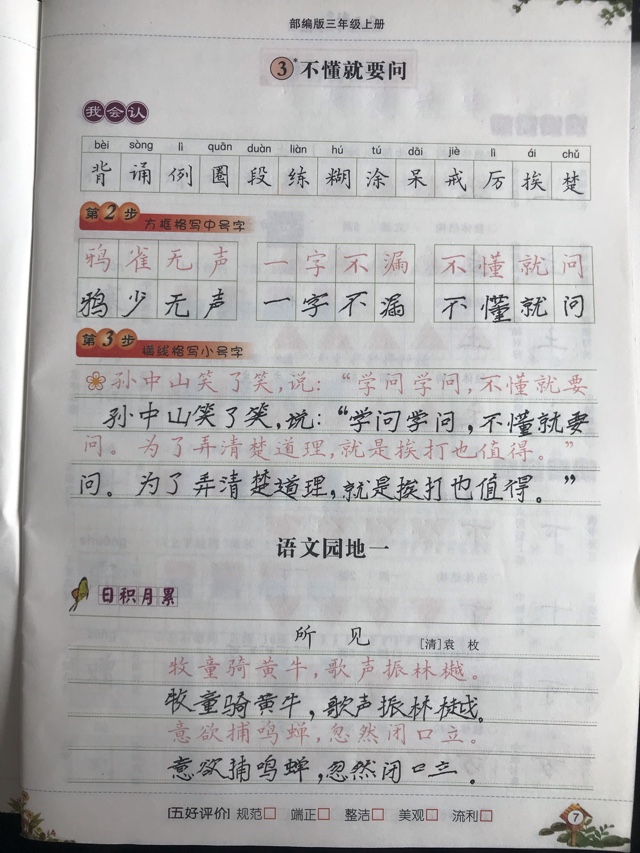 部编版三年级上册
3*不懂就要问
我会认
bèi sòng lì quān duàn liàn hú tú dāi jiè lì ái chǔ
背 诵 例 圈 段 练 糊 涂 呆 戒 厉 挨 楚
第2步 方框格写中号字
鸦雀无声 一字不漏 不懂就问
鸦少无声 一字不漏 不懂就问
第3步 横线格写小号字
孙中山笑了笑，说：“学问学问，不懂就要
孙中山笑了笑，说：“学问学问，不懂就要
问。为了弄清楚道理，就是挨打也值得。”
问。为了弄清楚道理，就是挨打也值得。”
语文园地一
日积月累
所见 [清]袁枚
牧童骑黄牛，歌声振林樾。
牧童骑黄牛，歌声振林樾。
意欲捕鸣蝉，忽然闭口立。
意欲捕鸣蝉，忽然闭口立。
[五好评价] 规范□ 端正□ 整洁□ 美观□ 流利□
7